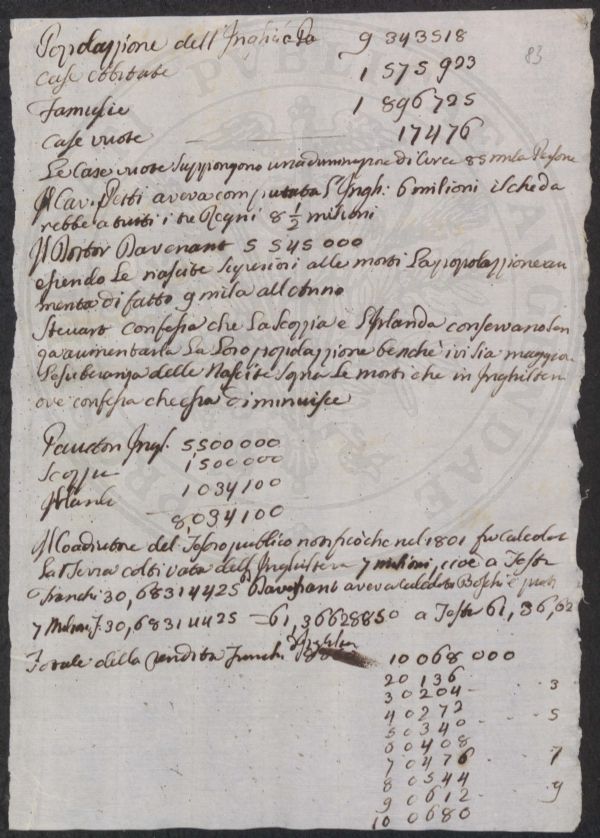 Popolazzione dell'Inghilterra 9 343518
83
Case abbitate 1 575 923
Famiglie 1 896725
Case vuote 17476
Le Case vuote suppongono una diminuzione di Circa 88 mila Persone
Il Cav. Petti aveva computata l'Ingh: 6 milioni il che da
rebbe a tutti i tre Regni 8 1/2 milioni
Il Dottor Davenant 5 545 000
essendo le nascite superiori alle morti La popolazzione au
menta di fatto 9 mila all'anno
Steuart confessa che la Scozzia e l'Irlanda conservano sen
za aumentarla la Loro popolazzione benchè ivi sia maggiore
l'esuberanza delle Nascite sopra le morti che in Inghilterra
ove confessa che essa diminuisce
Pauston Ingl. 5,500 000
Scozzia 1,500 000
Irlanda 1034100
8,034100
Il Coadiutore del Tesoro publico notificò che nel 1801 fu calcolat
La Terra coltivata dell'Inghilterra 7 milioni, cioè a Testa
franchi 30,68314425 Davenant aveva calcolato Boschi e prati
7 Milioni f. 30,68314425 = 61,36628850 a Testa 61,36,62
Totale della rendita franchi d'Inghilter 10 068 000
20 136
30204 3
40272
50340 5
60408
70476 7
80544
90612 9
10 0680